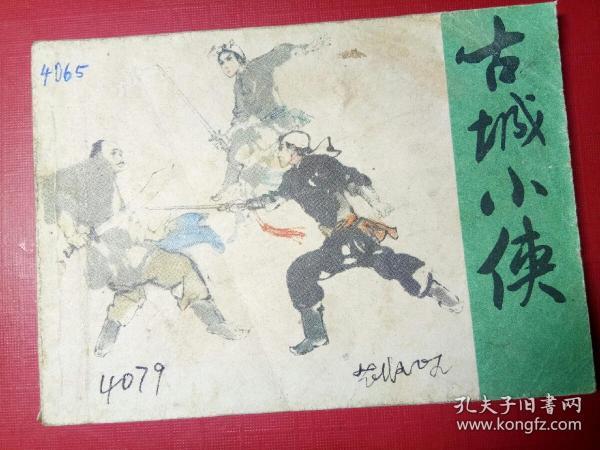 4065
古城小侠
4079
孔夫子旧書网
www.kongfz.com